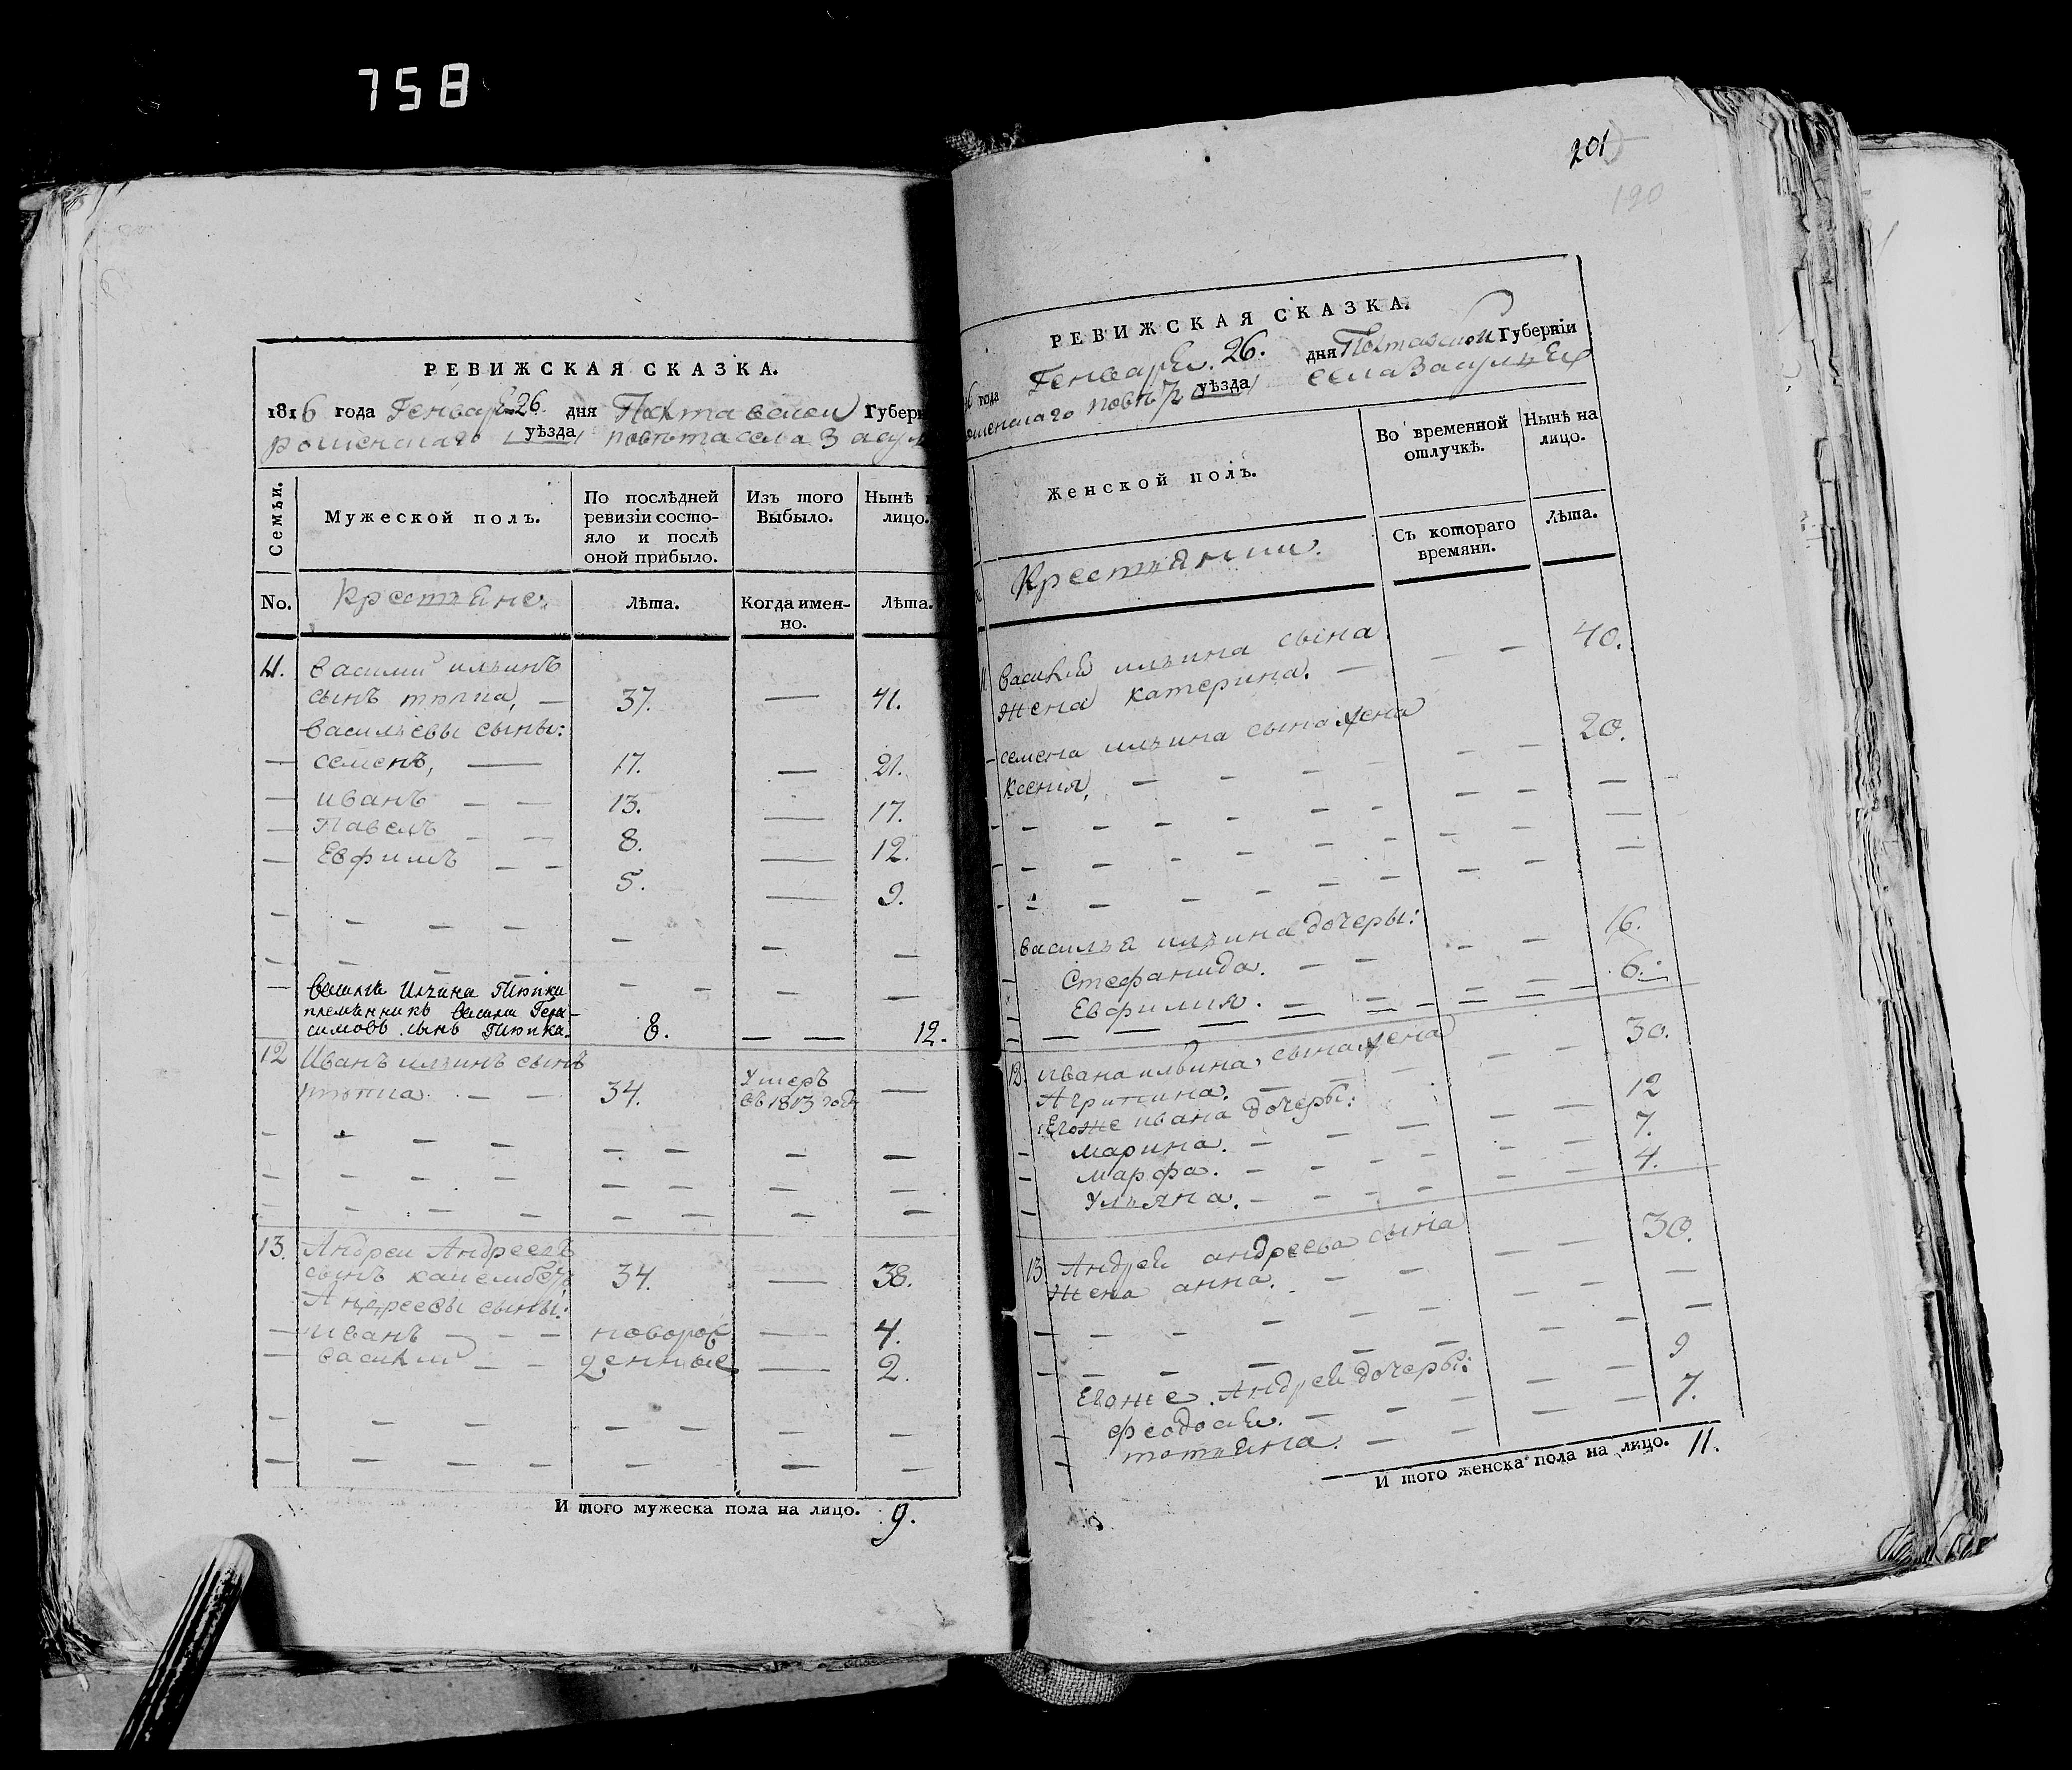 758
РЕВИЖСКАЯ СКАЗКА.
1816 года Генваря 26 дня Полтавской Губерн
роменского уѣзда повѣта села Засул
Семьи.
Мужеской полъ.
По послѣдней ревизіи состо-
яло и послѣ
оной прибыло.
Изъ того
Выбыло.
Нынѣ
лицо.
No.
Крестьяне
Лѣта.
Когда имен-
но.
Лѣта.
11. Василий ильинъ
сынъ 37. — 41.
васильевы сыны:
— семенъ, — 17. — 21.
— иванъ — — 13. — 17.
— Павелъ — — 8. — 12.
— Евфимъ — — 5. — 9.
Василія Ильина Тютки
племѣнникъ Василій Гера-
симовъ сынъ Тютка. 8. — — 12.
12 Иванъ ильинъ сынъ
— — 34. Умеръ —
въ 1813 году
13. Андрей Андреевъ
сынъ 34. — 38.
Андреевы сыны:
— иванъ — — новорож — 4.
— василий — — денные — 2.
И того мужеска пола на лицо. 9.
201
190
РЕВИЖСКАЯ СКАЗКА.
6 года Генваря 26. дня Полтавской Губерніи
оменского повѣ уѣзда села Засулья
Женской полъ.
Во временной
отлучкѣ.
Нынѣ на
лицо.
Крестьянки.
Съ котораго
времяни.
Лѣта.
11 Василия ильина сына
жена катерина. — — — 40.
— семена ильина сына жена
ксения, — — — — — 20.
василья ильина дочеры:
Стефанида. — — — — 16.
Евфимия. — — — — 6.
12. ивана ильина сына жена
Агрипина. — — — — 30.
Егоже ивана дочеры:
марина. — — — — 12
марфа. — — — — 7.
Ульяна. — — — — 4.
13. Андрея андреева сына
жена анна. — — — — 30.
Егоже Андрея дочеры:
феодосия. — — — — 9
татьяна. — — — — 7.
И того женска пола на лицо. 11.